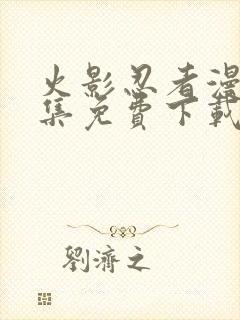 火影忍者漫
集免費下載
劉濟之